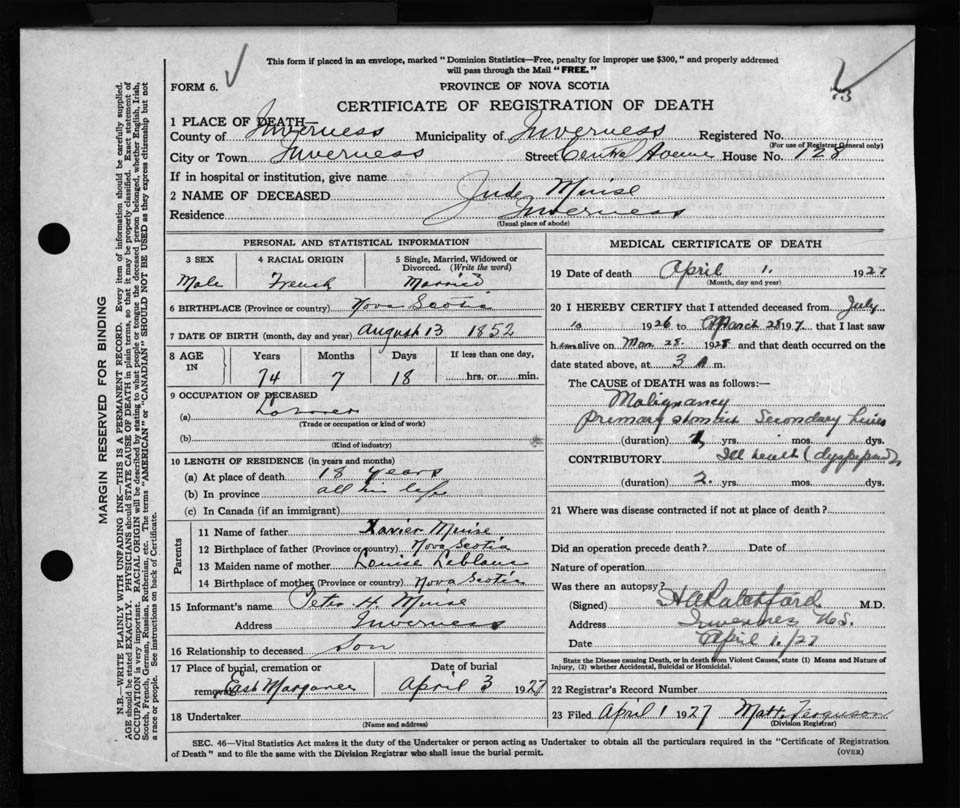 This form if placed in an envelope, marked "Dominion Statistics—Free, penalty for improper use $300," and properly addressed
will pass through the Mail "FREE."
FORM 6.
PROVINCE OF NOVA SCOTIA
73
CERTIFICATE OF REGISTRATION OF DEATH
1 PLACE OF DEATH—
County of Inverness Municipality of Inverness Registered No.
(For use of Registrar General only)
City or Town Inverness Street Central Avenue House No. 128
If in hospital or institution, give name
2 NAME OF DECEASED Jude Muise
Residence Inverness
(Usual place of abode)
MARGIN RESERVED FOR BINDING
N.B.—WRITE PLAINLY WITH UNFADING INK—THIS IS A PERMANENT RECORD. Every item of information should be carefully supplied.
AGE should be stated EXACTLY. PHYSICIANS should STATE CAUSE OF DEATH in plain terms, so that it may be properly classified. Exact statement of
OCCUPATION is very important. RACIAL ORIGIN will be described by stating to what people or tongue the deceased person belonged, whether English, Irish,
Scotch, French, German, Russian, Ruthenian, etc. The terms "AMERICAN" or "CANADIAN" SHOULD NOT BE USED as they express citizenship but not
a race or people. See instructions on back of Certificate.
PERSONAL AND STATISTICAL INFORMATION
3 SEX
Male
4 RACIAL ORIGIN
French
5 Single, Married, Widowed or
Divorced. (Write the word)
Married
6 BIRTHPLACE (Province or country) Nova Scotia
7 DATE OF BIRTH (month, day and year) August 13 1852
8 AGE
IN
Years
74
Months
7
Days
18
If less than one day,
hrs. or min.
9 OCCUPATION OF DECEASED
(a) Laborer
(Trade or occupation or kind of work)
(b)
(Kind of industry)
10 LENGTH OF RESIDENCE (in years and months)
(a) At place of death 18 years
(b) In province all his life
(c) In Canada (if an immigrant)
Parents
11 Name of father Xavier Muise
12 Birthplace of father (Province or country) Nova Scotia
13 Maiden name of mother Louise Leblanc
14 Birthplace of mother (Province or country) Nova Scotia
15 Informant's name Peter H. Muise
Address Inverness
16 Relationship to deceased Son
17 Place of burial, cremation or
removal East Margaree
Date of burial
April 3 1927
18 Undertaker
(Name and address)
MEDICAL CERTIFICATE OF DEATH
19 Date of death April 1. 1927
(Month, day and year)
20 I HEREBY CERTIFY that I attended deceased from July
10 1926 to March 28 1927. that I last saw
him alive on Mar 28. 1928 and that death occurred on the
date stated above, at 3 A m.
The CAUSE of DEATH was as follows:—
Malignancy
Primary stomach Secondary Liver
(duration) yrs. mos. dys.
CONTRIBUTORY Ill health (dyspepsia)
(duration) 2 yrs. mos. dys.
21 Where was disease contracted if not at place of death?
Did an operation precede death? Date of
Nature of operation
Was there an autopsy?
(Signed) H A Ratchford M.D.
Address Inverness N.S.
Date April 1./27
State the Disease causing Death, or in death from Violent Causes, state (1) Means and Nature of
Injury, (2) whether Accidental, Suicidal or Homicidal.
22 Registrar's Record Number
23 Filed April 1 1927 Matt. Ferguson
(Division Registrar)
SEC. 46—Vital Statistics Act makes it the duty of the Undertaker or person acting as Undertaker to obtain all the particulars required in the "Certificate of Registration
of Death" and to file the same with the Division Registrar who shall issue the burial permit.
(OVER)